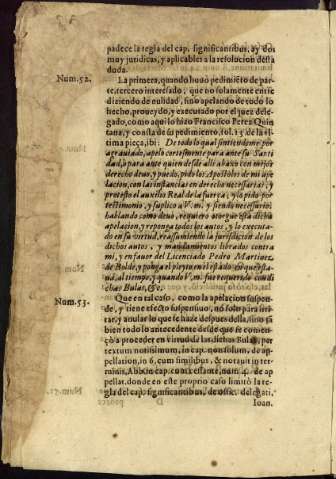 padece la regla del cap. significantibus, ay dos
muy juridicas, y aplicables a la resolucion desta
duda.
Num. 52.
La primera, quando huuo pedimiẽto de par-
te, tercero interesado, que no solamente entre
diziendo de nulidad, sino apelando de todo lo
hecho, proueydo, y executado por el juez dele-
gado, como aqui lo hizo Francisco Perez Quin
tana, y consta de su pedimiento, fol. 15 de la vl-
tima pieça, ibi: De todo lo qual sintiendome por
agrauiado, apelo certisimente para ante su Santi
dad, ò para ante quien desde alli aba xo con mejor
derecho deuo, y puedo, pido los Apostolos de mi ape
lacion, con las instancias en derecho necessarias; y
protesto el auxilio Real de la fuerça, y lo pido por
testimonio, y suplico a V.m. y siendo necessario
hablando como deuo, requiero otorgue esta dicha
apelacion, y reponga todos los autos, y lo executa-
do en su virtud, reassumiendo la jurisdicion de los
dichos autos, y mandamientos librados contra
mi, y en fauor del Licenciado Pedro Martinez
de y ponga el pleyto en el estado en que esta-
ua, al tiempo, y quando V.m. fue requerido con di
chas Bulas, &c.
Num. 53.
Que en tal caso, como la apelacion suspen-
de, y tiene efecto suspensiuo, no solo para irri-
tar, y anular lo que se haze despues della, sino tã
bien todo lo antecedente desde que se comen-
çò a proceder en virtud de las dichas Bulas, por
textum notissimum, in cap. non solum, de ap-
pellation, in 6. cum similibus, & notauit in ter-
minis, Abb. in cap. cum cessante, num. 4. de ap-
pellat. donde en este proprio caso limitò la re-
gla del cap. significantibus, de offic. delegati,
Ioan.